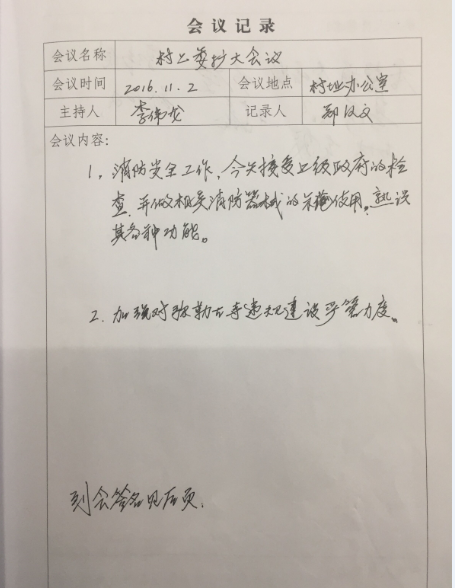 会议记录
会议名称 村上委扩大会议
会议时间 2016.11.2 会议地点 村办公室
主持人 李伟 记录人 郑
会议内容:
1. 消防安全工作,今天接受上级政府的检
查,并做相关消防器械的示范使用,熟识
其各种功能。
2. 加强对弥勒古寺违规建设严管力度。
到会签名见后页.